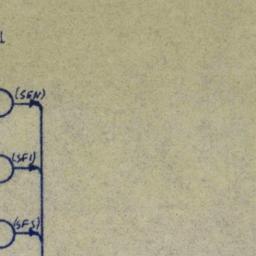 (SEN)
(SFI)
(SFS)